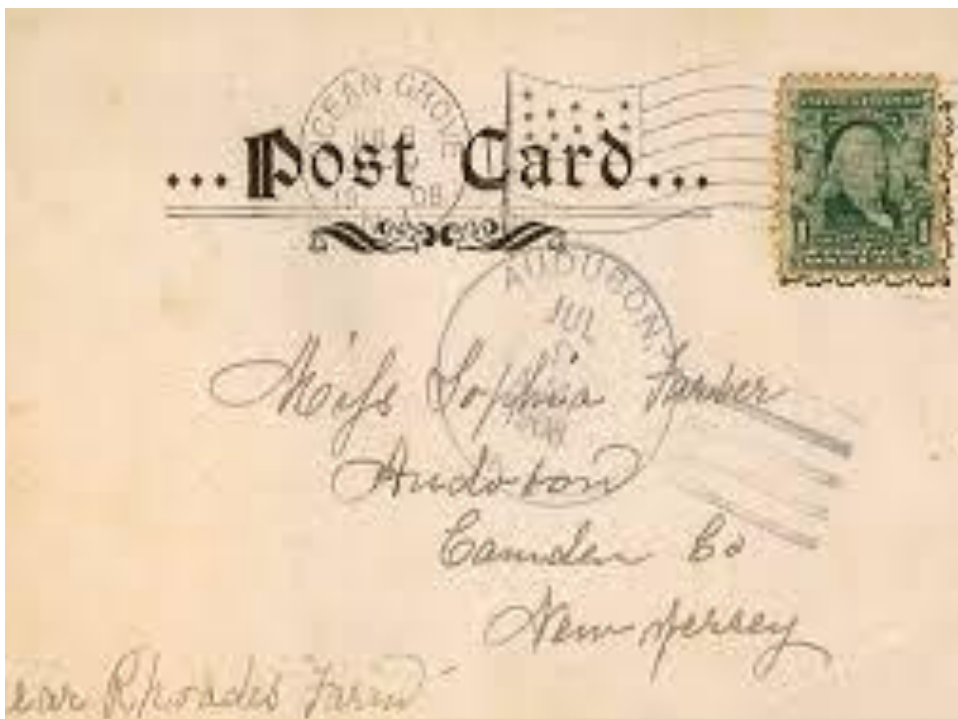 OCEAN GROVE
... Post Card ...
19 08
AUDUBON
JUL
Miss Sophia Farber
Audobon
Camden Co
New Jersey
ear Rhoades Farm
1 1